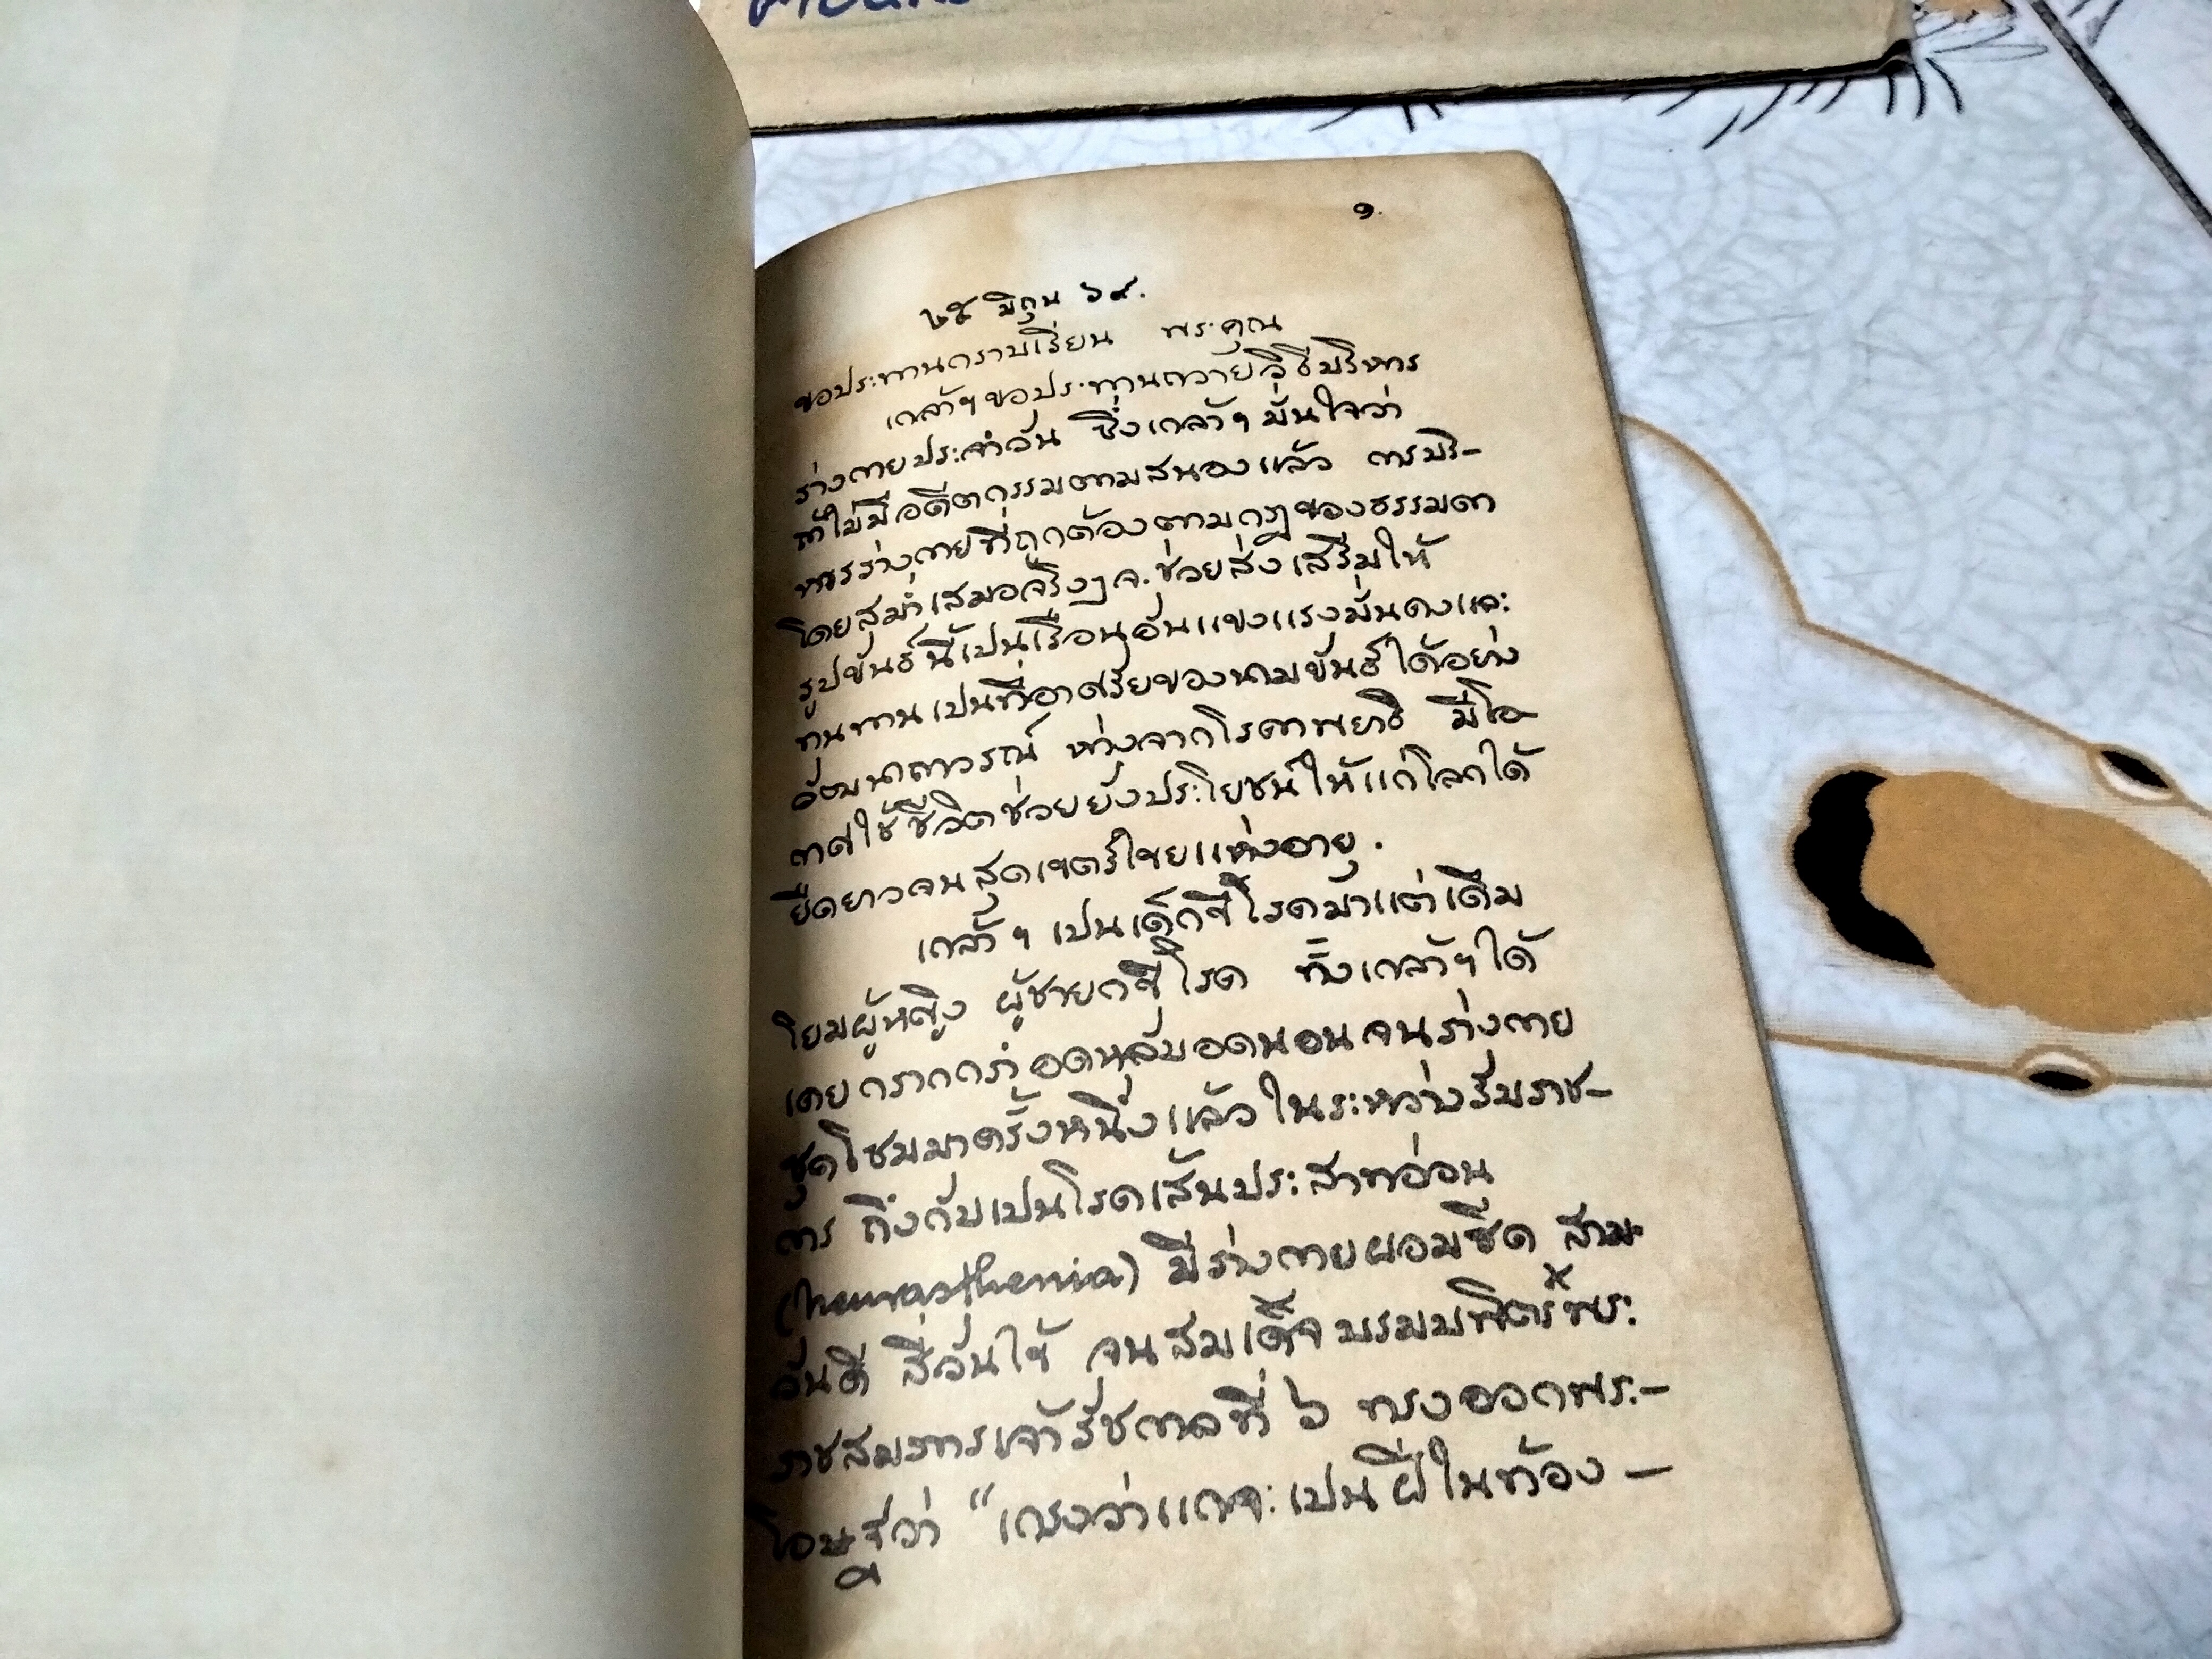 ๑.
๒๕ มิถุน ๖๙.
ขอประทานกราบเรียน พระคุณ
เกล้าฯขอประทานถวายวิธีบริหาร
ร่างกายประจำวัน ซึ่งเกล้าฯมั่นใจว่า
ถ้าไม่มีอดีตกรรมตามสนองแล้ว การบริ-
หารร่างกายที่ถูกต้องตามกฎของธรรมดา
โดยสม่ำเสมอจริงๆจะช่วยส่งเสริมให้
รูปขันธ์นี้เปนเรือนอันแขงแรงมั่นคงและ
ทนทานเปนที่อาศรัยของนามขันธ์ได้อย่าง
อัตมนาถาวรณ์ ห่างจากโรคาพยาธิ มีโอ-
กาศใช้ชีวิตช่วยยังประโยชน์ให้แก่โลกได้
ยืดยาวจนสุดเขตร์ไขยแห่งอายุ.
เกล้าฯ เปนเด็กขี้โรคมาแต่เดิม
โยมผู้หญิง ผู้ชายกขี้โรค ทั้งเกล้าฯได้
เคยกรากกรำอดหลับอดนอนจนร่างกาย
ซุดโซมมาครั้งหนึ่งแล้วในระหว่างรับราช-
การ ถึงกับเปนโรคเส้นประสาทอ่อน
(neurasthenia) มีร่างกายผอมซีด สาม
วันดี สี่วันไข้ จนสมเด็จบรมบพิตร์พระ
x
ราชสมภารเจ้ารัชกาลที่ ๖ ทรงออกพระ-
โอษฐ์ว่า “เกรงว่าแกจะเปนฝีในท้อง-